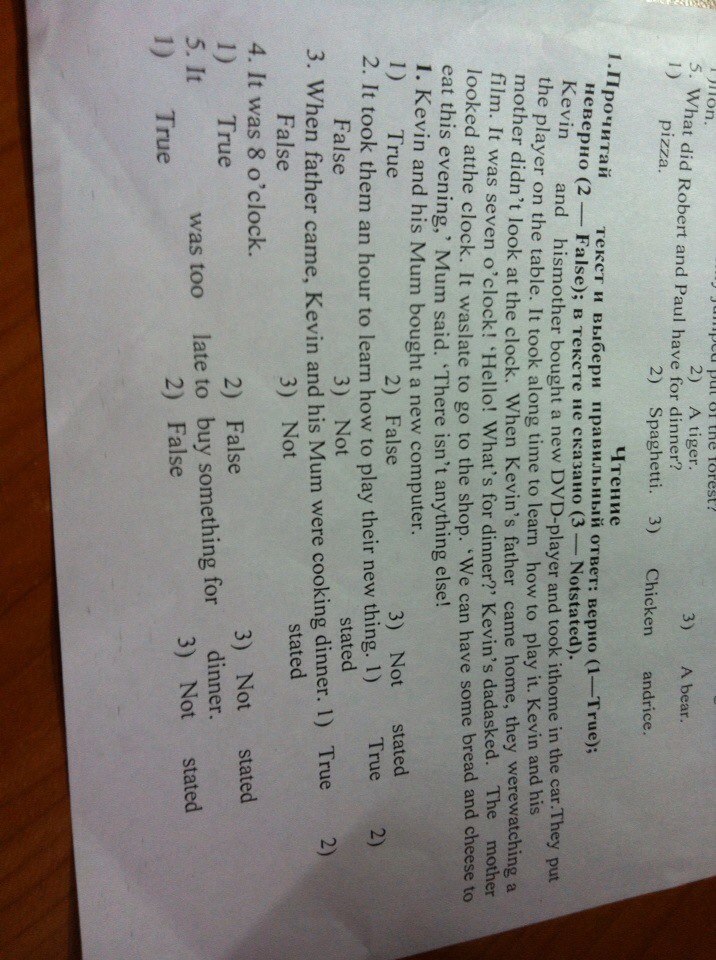 1)lion. 2) A tiger. 3) A bear.
5. What did Robert and Paul have for dinner?
1) pizza. 2) Spaghetti. 3) Chicken andrice.
Чтение
1.Прочитай текст и выбери правильный ответ: верно (1—True);
неверно (2 — False); в тексте не сказано (3 — Notstated).
Kevin and hismother bought a new DVD-player and took ithome in the car.They put
the player on the table. It took along time to learn how to play it. Kevin and his
mother didn't look at the clock. When Kevin's father came home, they werewatching a
film. It was seven o'clock! 'Hello! What's for dinner?' Kevin's dadasked. The mother
looked atthe clock. It waslate to go to the shop. 'We can have some bread and cheese to
eat this evening,' Mum said. 'There isn't anything else!
1. Kevin and his Mum bought a new computer.
1) True 2) False 3) Not stated
2. It took them an hour to learn how to play their new thing. 1) True 2)
False 3) Not stated
3. When father came, Kevin and his Mum were cooking dinner. 1) True 2)
False 3) Not stated
4. It was 8 o'clock.
1) True 2) False 3) Not stated
5. It was too late to buy something for dinner.
1) True 2) False 3) Not stated